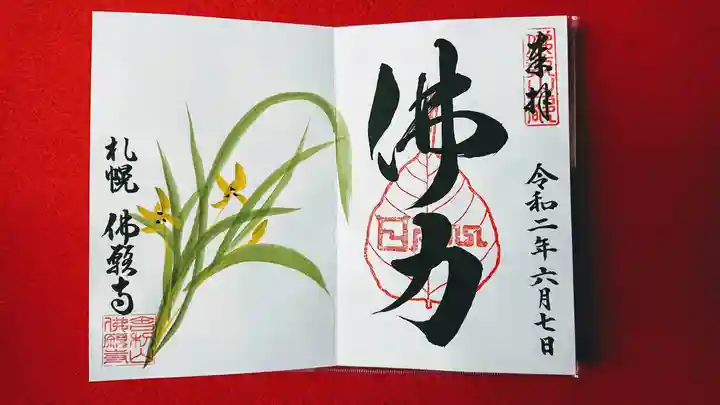 奉拝
佛力
令和二年六月七日
札幌 佛願寺